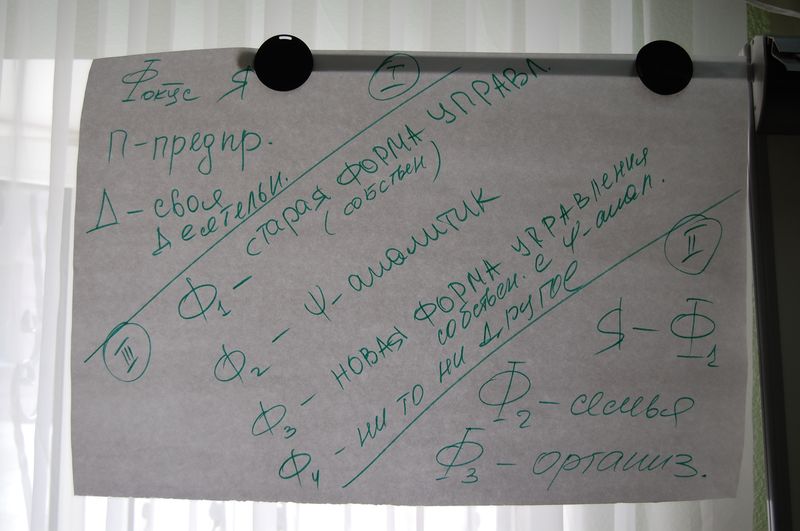 Фокус Я
I
П-предпр.
Д-своя
деятельн.
Ф1 - старая ФОРМА УПРАВЛ.
(собствен)
Ф2 - Ψ-аналитик
Ф3 - НОВАЯ ФОРМА УПРАВЛЕНИЯ
собствен. с Ψ-анал.
Ф4 - НИ ТО НИ ДРУГОЕ
III
II
Я - Ф1
Ф2 - семья
Ф3 - организ.